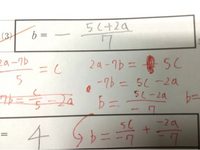 (3) b = − 5c+2a / 7
2a−7b / 5 = c
2a−7b = 5c
−7b = 5c−2a
b = 5c−2a / −7
b=
= 4
b = 5c / −7 + −2a / −7